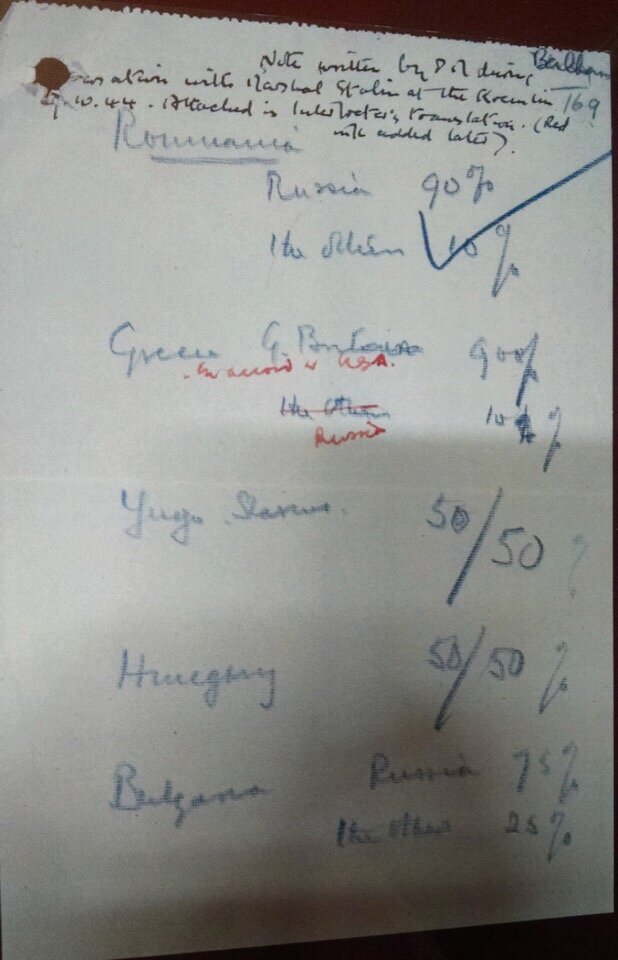 Note written by P M during
conversation with Marshal Stalin at the Kremlin 169
9.10.44. Attached is Interpreter's translation. (Red
ink added later).
Roumania
Russia 90%
The others 10%
Greece G. Britain 90%
in accord w USA.
The Others 10%
Russia
Yugo Slavia 50/50 %
Hungary 50/50 %
Bulgaria Russia 75%
The other 25%